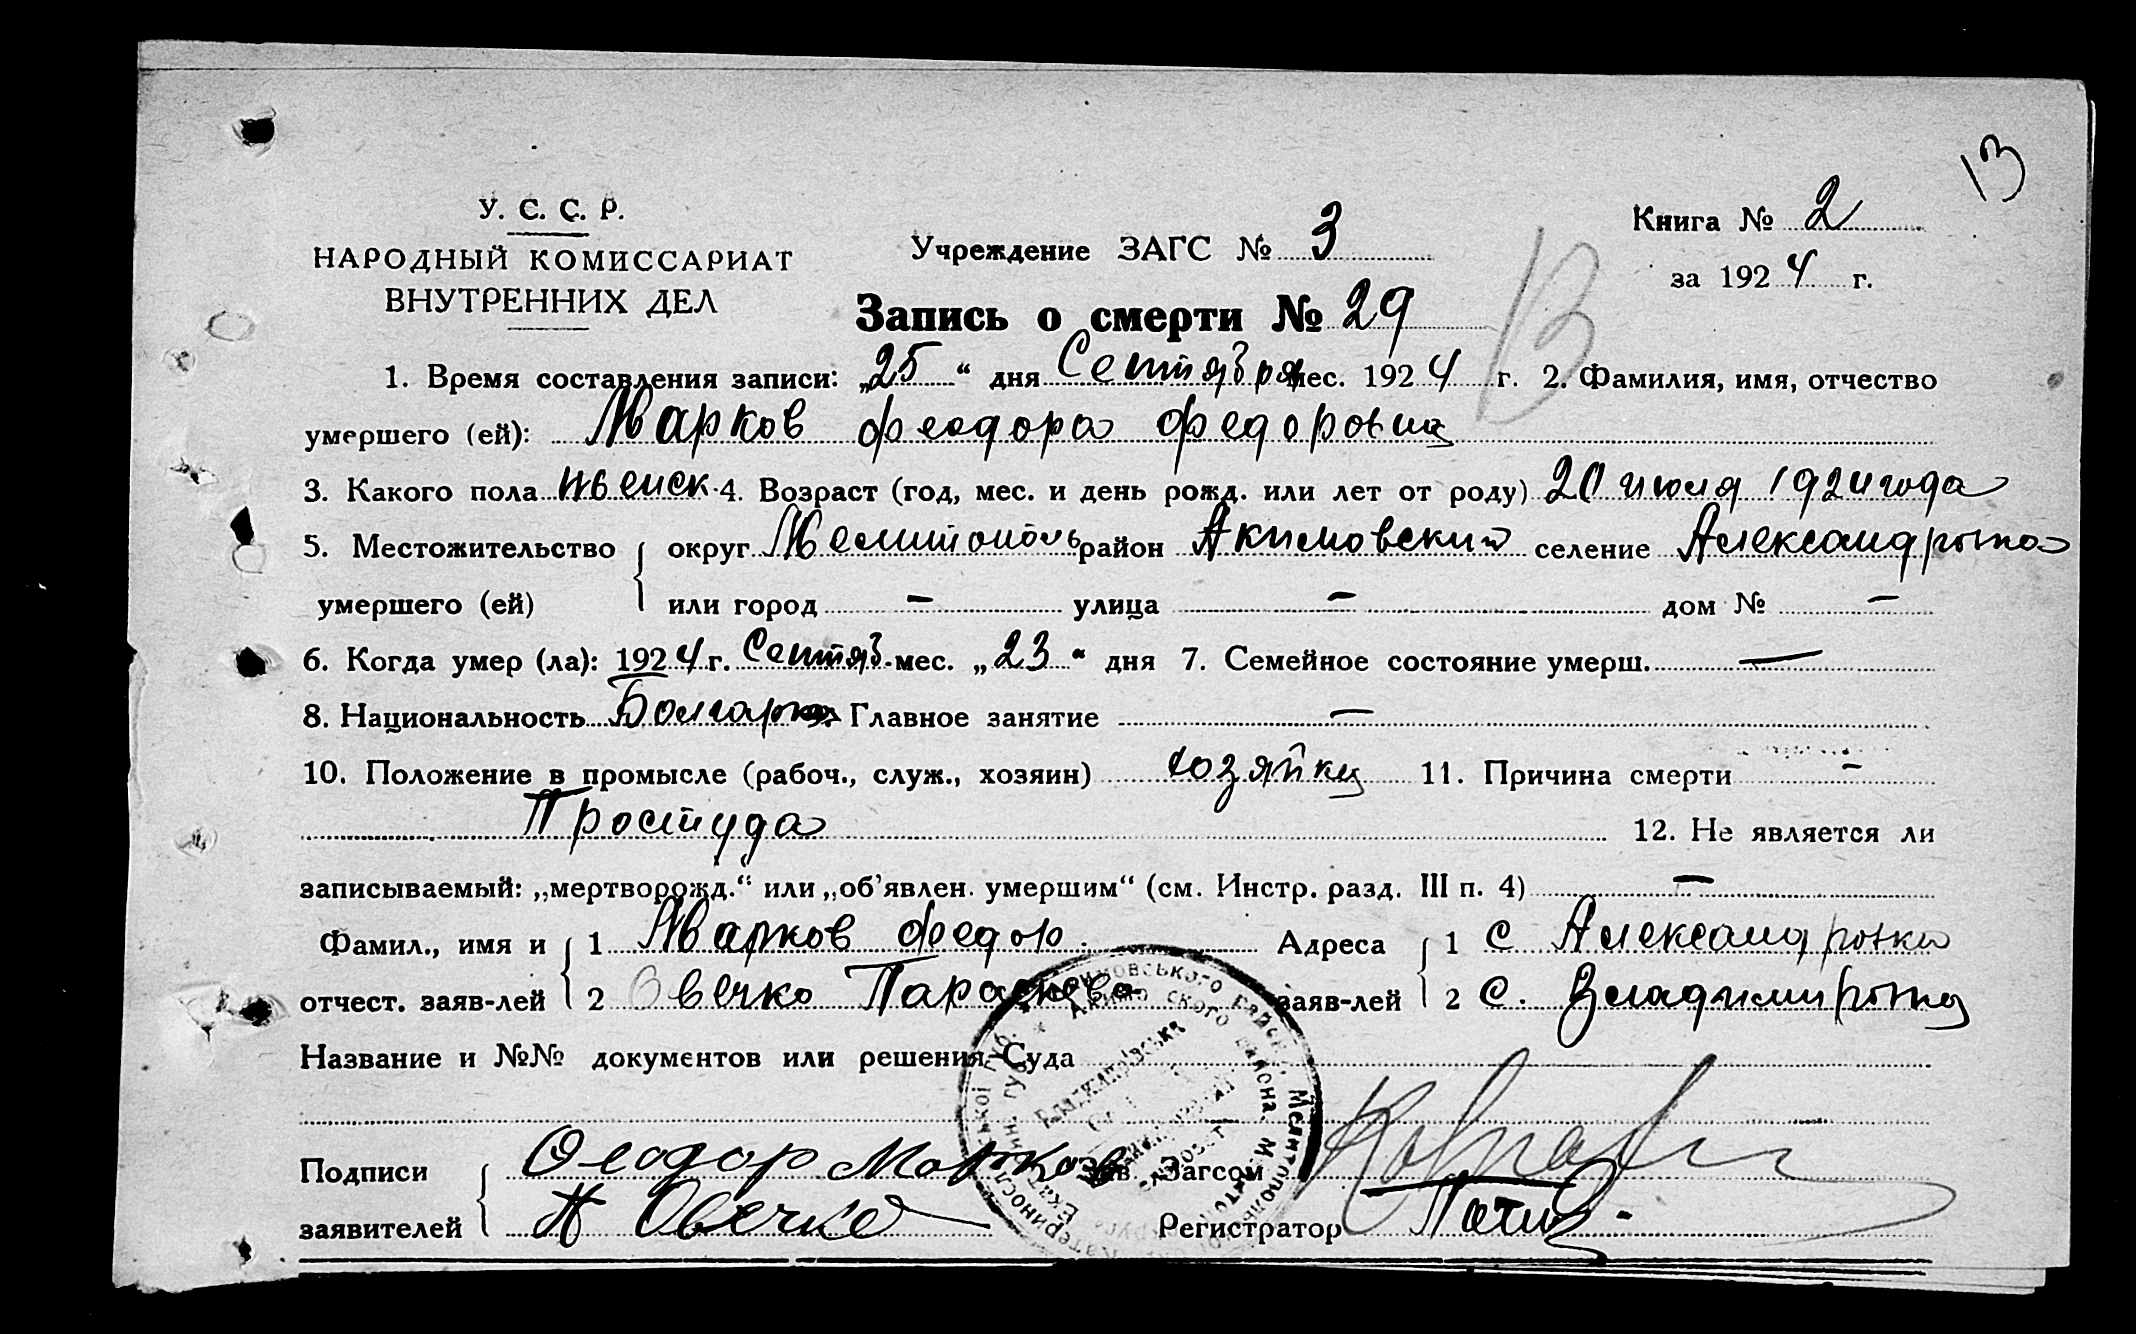 13
У. С. С. Р.
НАРОДНЫЙ КОМИССАРИАТ
ВНУТРЕННИХ ДЕЛ
Учреждение ЗАГС № 3
Книга № 2
за 1924 г.
Запись о смерти № 29
13
1. Время составления записи: „25“ дня Сентября мес. 1924 г. 2. Фамилия, имя, отчество
умершего (ей): Марков Феодора Федоровна
3. Какого пола женск. 4. Возраст (год, мес. и день рожд. или лет от роду) 20 июля 1924 года
5. Местожительство округ Мелитополь район Акимовский селение Александровка
умершего (ей) или город — улица — дом № —
6. Когда умер (ла): 1924 г. Сентяб. мес. „23“ дня 7. Семейное состояние умерш. —
8. Национальность Болгарка Главное занятие —
10. Положение в промысле (рабоч., служ., хозяин) хозяйка 11. Причина смерти —
Простуда 12. Не является ли
записываемый: „мертворожд.“ или „об’явлен. умершим“ (см. Инстр. разд. III п. 4) —
Фамил., имя и 1 Марков Федор. Адреса 1 с Александровка
отчест. заяв-лей 2 Овечко заяв-лей 2 с. Владимировка
Название и №№ документов или решения Суда
Подписи Феодор Марков Зав. Загсом
заявителей П Овечко Регистратор